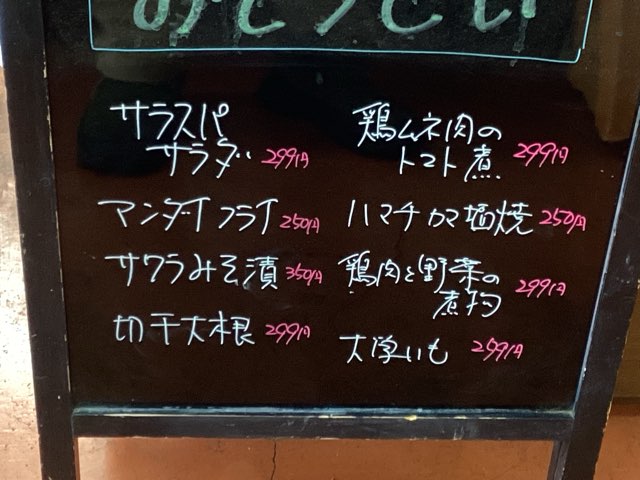 おそうざい
サラスパ
サラダ 299円
マンダイフライ 250円
サワラみそ漬 350円
切干大根 299円
鶏ムネ肉の
トマト煮 299円
ハマチカマ塩焼 250円
鶏肉と野菜の
煮物 299円
大学いも 299円